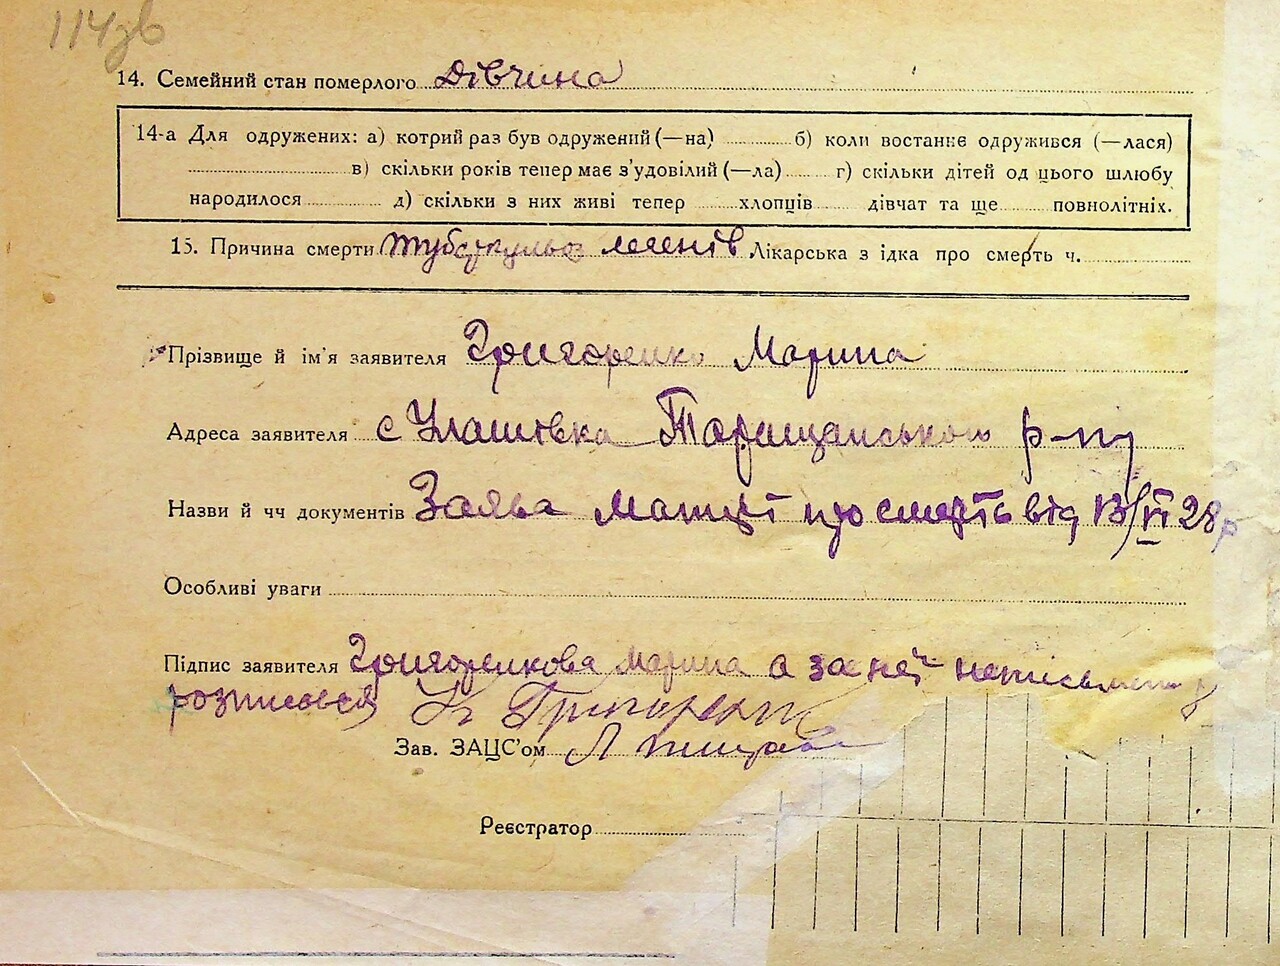 114зв
14. Семейний стан померлого Дівчина
14-а Для одружених: а) котрий раз був одружений (—на) б) коли востаннє одружився (—лася)
в) скільки років тепер має з'удовілий (—ла) г) скільки дітей од цього шлюбу
народилося д) скільки з них живі тепер хлопців дівчат та ще повнолітніх.
15. Причина смерти туберкульоз легенів Лікарська з ідка про смерть ч.
Прізвище й ім'я заявителя Григоренко Марина
Адреса заявителя с Улашівка Таращанського р-ну
Назви й чч документів Заява матері про смерть від 13/VI 28р
Особливі уваги
Підпис заявителя Григоренкова Марина а за неї неписьменну
розписався Григоренко
Зав. ЗАЦС'ом
Реєстратор